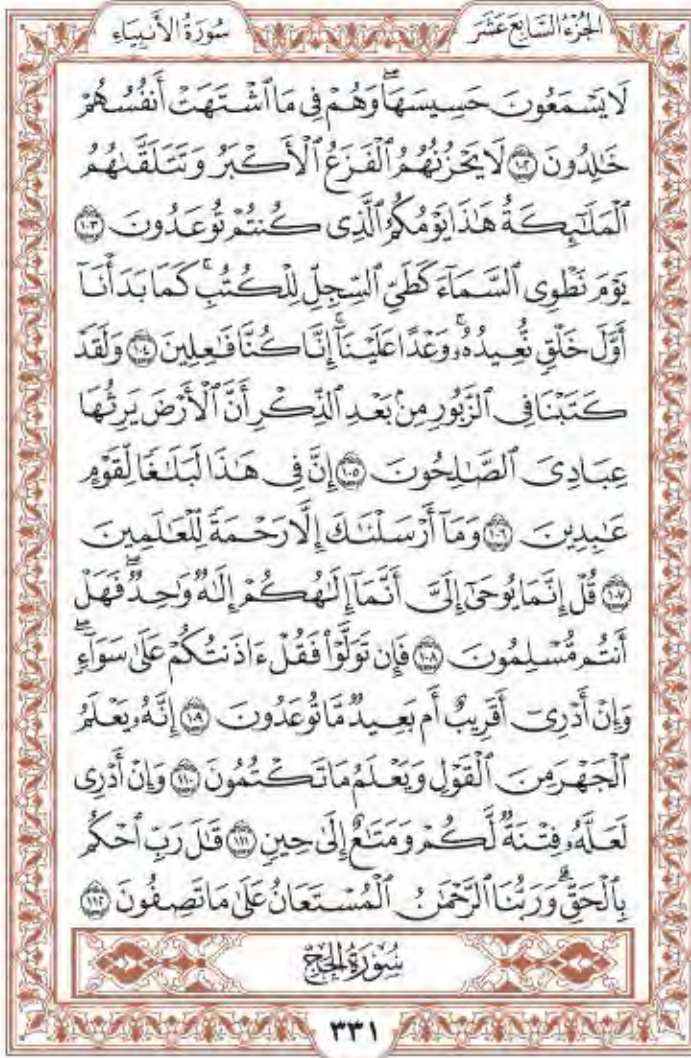 الجُزْءُ السَّابِعَ عَشَرَ سُورَةُ الأَنبِيَاءِ
لَا يَسْمَعُونَ حَسِيسَهَاۖ وَهُمْ فِي مَا ٱشْتَهَتْ أَنفُسُهُمْ
خَٰلِدُونَ ١٠٢ لَا يَحْزُنُهُمُ ٱلْفَزَعُ ٱلْأَكْبَرُ وَتَتَلَقَّىٰهُمُ
ٱلْمَلَٰٓئِكَةُ هَٰذَا يَوْمُكُمُ ٱلَّذِي كُنتُمْ تُوعَدُونَ ١٠٣
يَوْمَ نَطْوِي ٱلسَّمَآءَ كَطَيِّ ٱلسِّجِلِّ لِلْكُتُبِۚ كَمَا بَدَأْنَآ
أَوَّلَ خَلْقٍ نُّعِيدُهُۥۚ وَعْدًا عَلَيْنَآۚ إِنَّا كُنَّا فَٰعِلِينَ ١٠٤ وَلَقَدْ
كَتَبْنَا فِي ٱلزَّبُورِ مِنۢ بَعْدِ ٱلذِّكْرِ أَنَّ ٱلْأَرْضَ يَرِثُهَا
عِبَادِيَ ٱلصَّٰلِحُونَ ١٠٥ إِنَّ فِي هَٰذَا لَبَلَٰغًا لِّقَوْمٍ
عَٰبِدِينَ ١٠٦ وَمَآ أَرْسَلْنَٰكَ إِلَّا رَحْمَةً لِّلْعَٰلَمِينَ
١٠٧ قُلْ إِنَّمَا يُوحَىٰٓ إِلَيَّ أَنَّمَآ إِلَٰهُكُمْ إِلَٰهٌ وَٰحِدٌۖ فَهَلْ
أَنتُم مُّسْلِمُونَ ١٠٨ فَإِن تَوَلَّوْا۟ فَقُلْ ءَاذَنتُكُمْ عَلَىٰ سَوَآءٍۖ
وَإِنْ أَدْرِيٓ أَقَرِيبٌ أَم بَعِيدٌ مَّا تُوعَدُونَ ١٠٩ إِنَّهُۥ يَعْلَمُ
ٱلْجَهْرَ مِنَ ٱلْقَوْلِ وَيَعْلَمُ مَا تَكْتُمُونَ ١١٠ وَإِنْ أَدْرِي
لَعَلَّهُۥ فِتْنَةٌ لَّكُمْ وَمَتَٰعٌ إِلَىٰ حِينٍ ١١١ قَٰلَ رَبِّ ٱحْكُم
بِٱلْحَقِّۗ وَرَبُّنَا ٱلرَّحْمَٰنُ ٱلْمُسْتَعَانُ عَلَىٰ مَا تَصِفُونَ ١١٢
سُورَةُ الحَجِّ
٣٣١